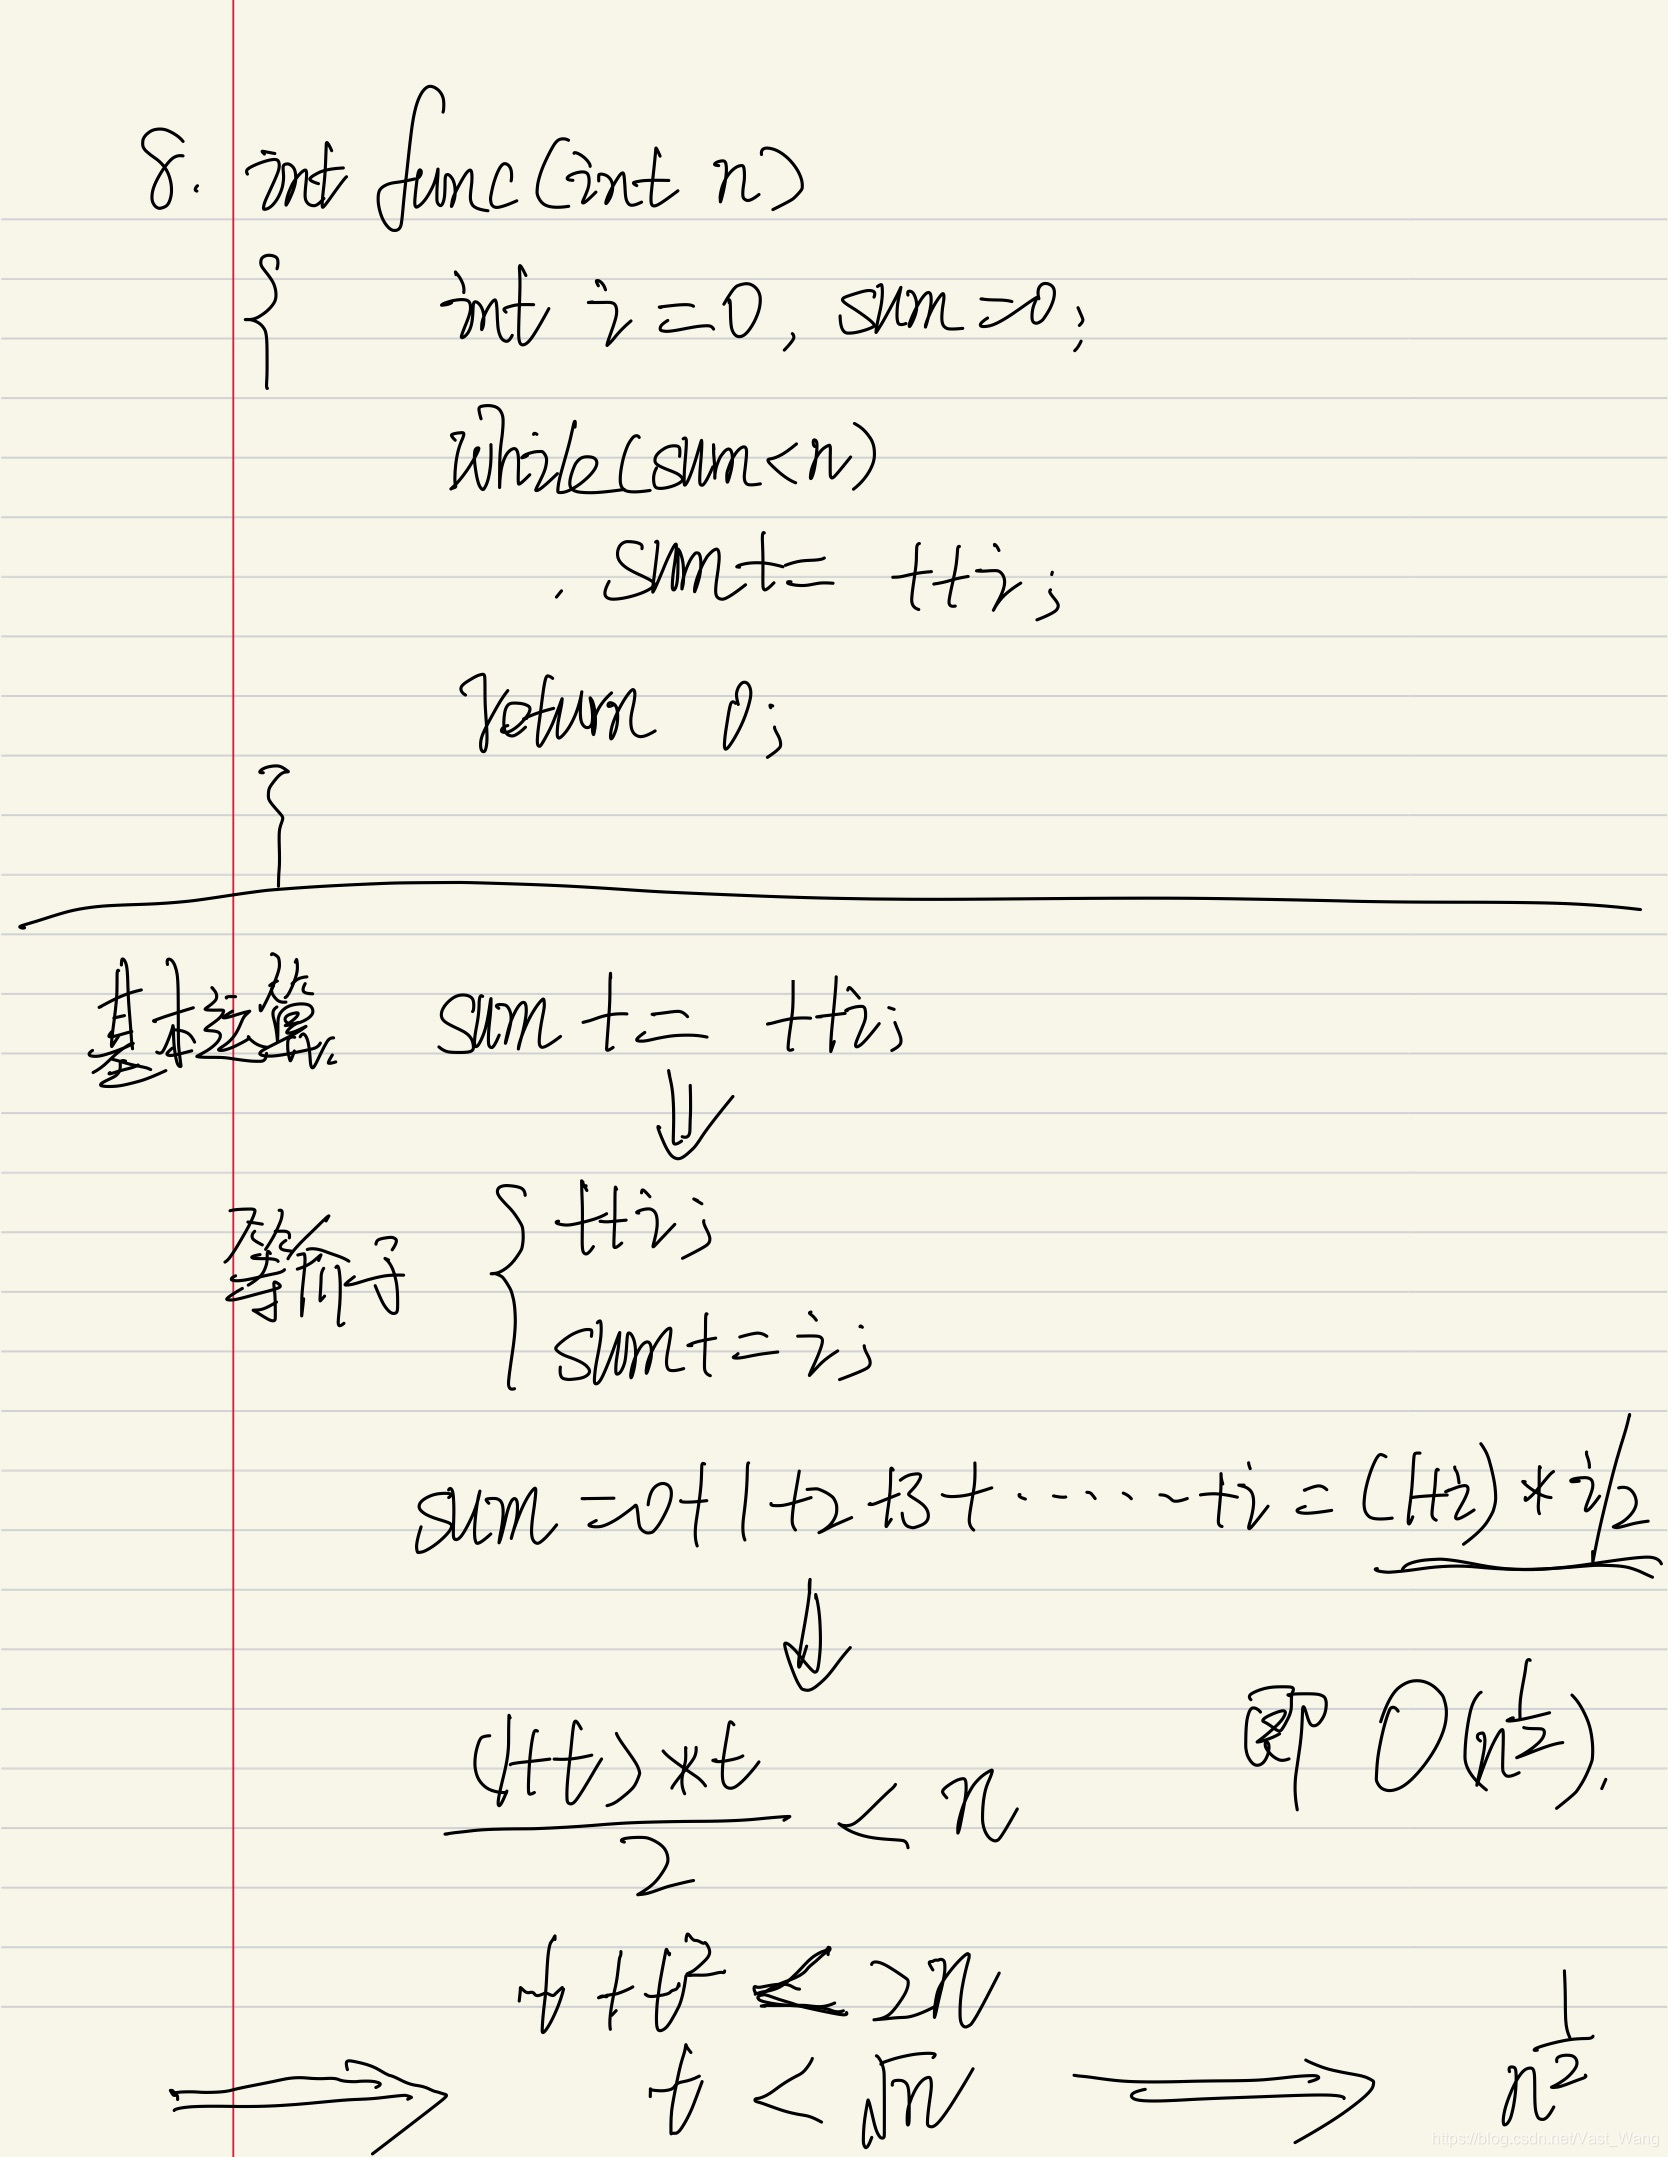 8. int func(int n)
{ int i=0, sum=0;
while(sum<n)
sum+= ++i;
return 0;
}
基本运算 sum += ++i;
⇓
等价于 { ++i;
sum+=i;
sum=0+1+2+3+······+i=(1+i)*i/2
⇓
(1+t)*t/2 < n 即 O(n^{1/2}).
t+t² < 2n
⟹ t<√n ⟹ n^{1/2}
https://blog.csdn.net/Vast_Wang